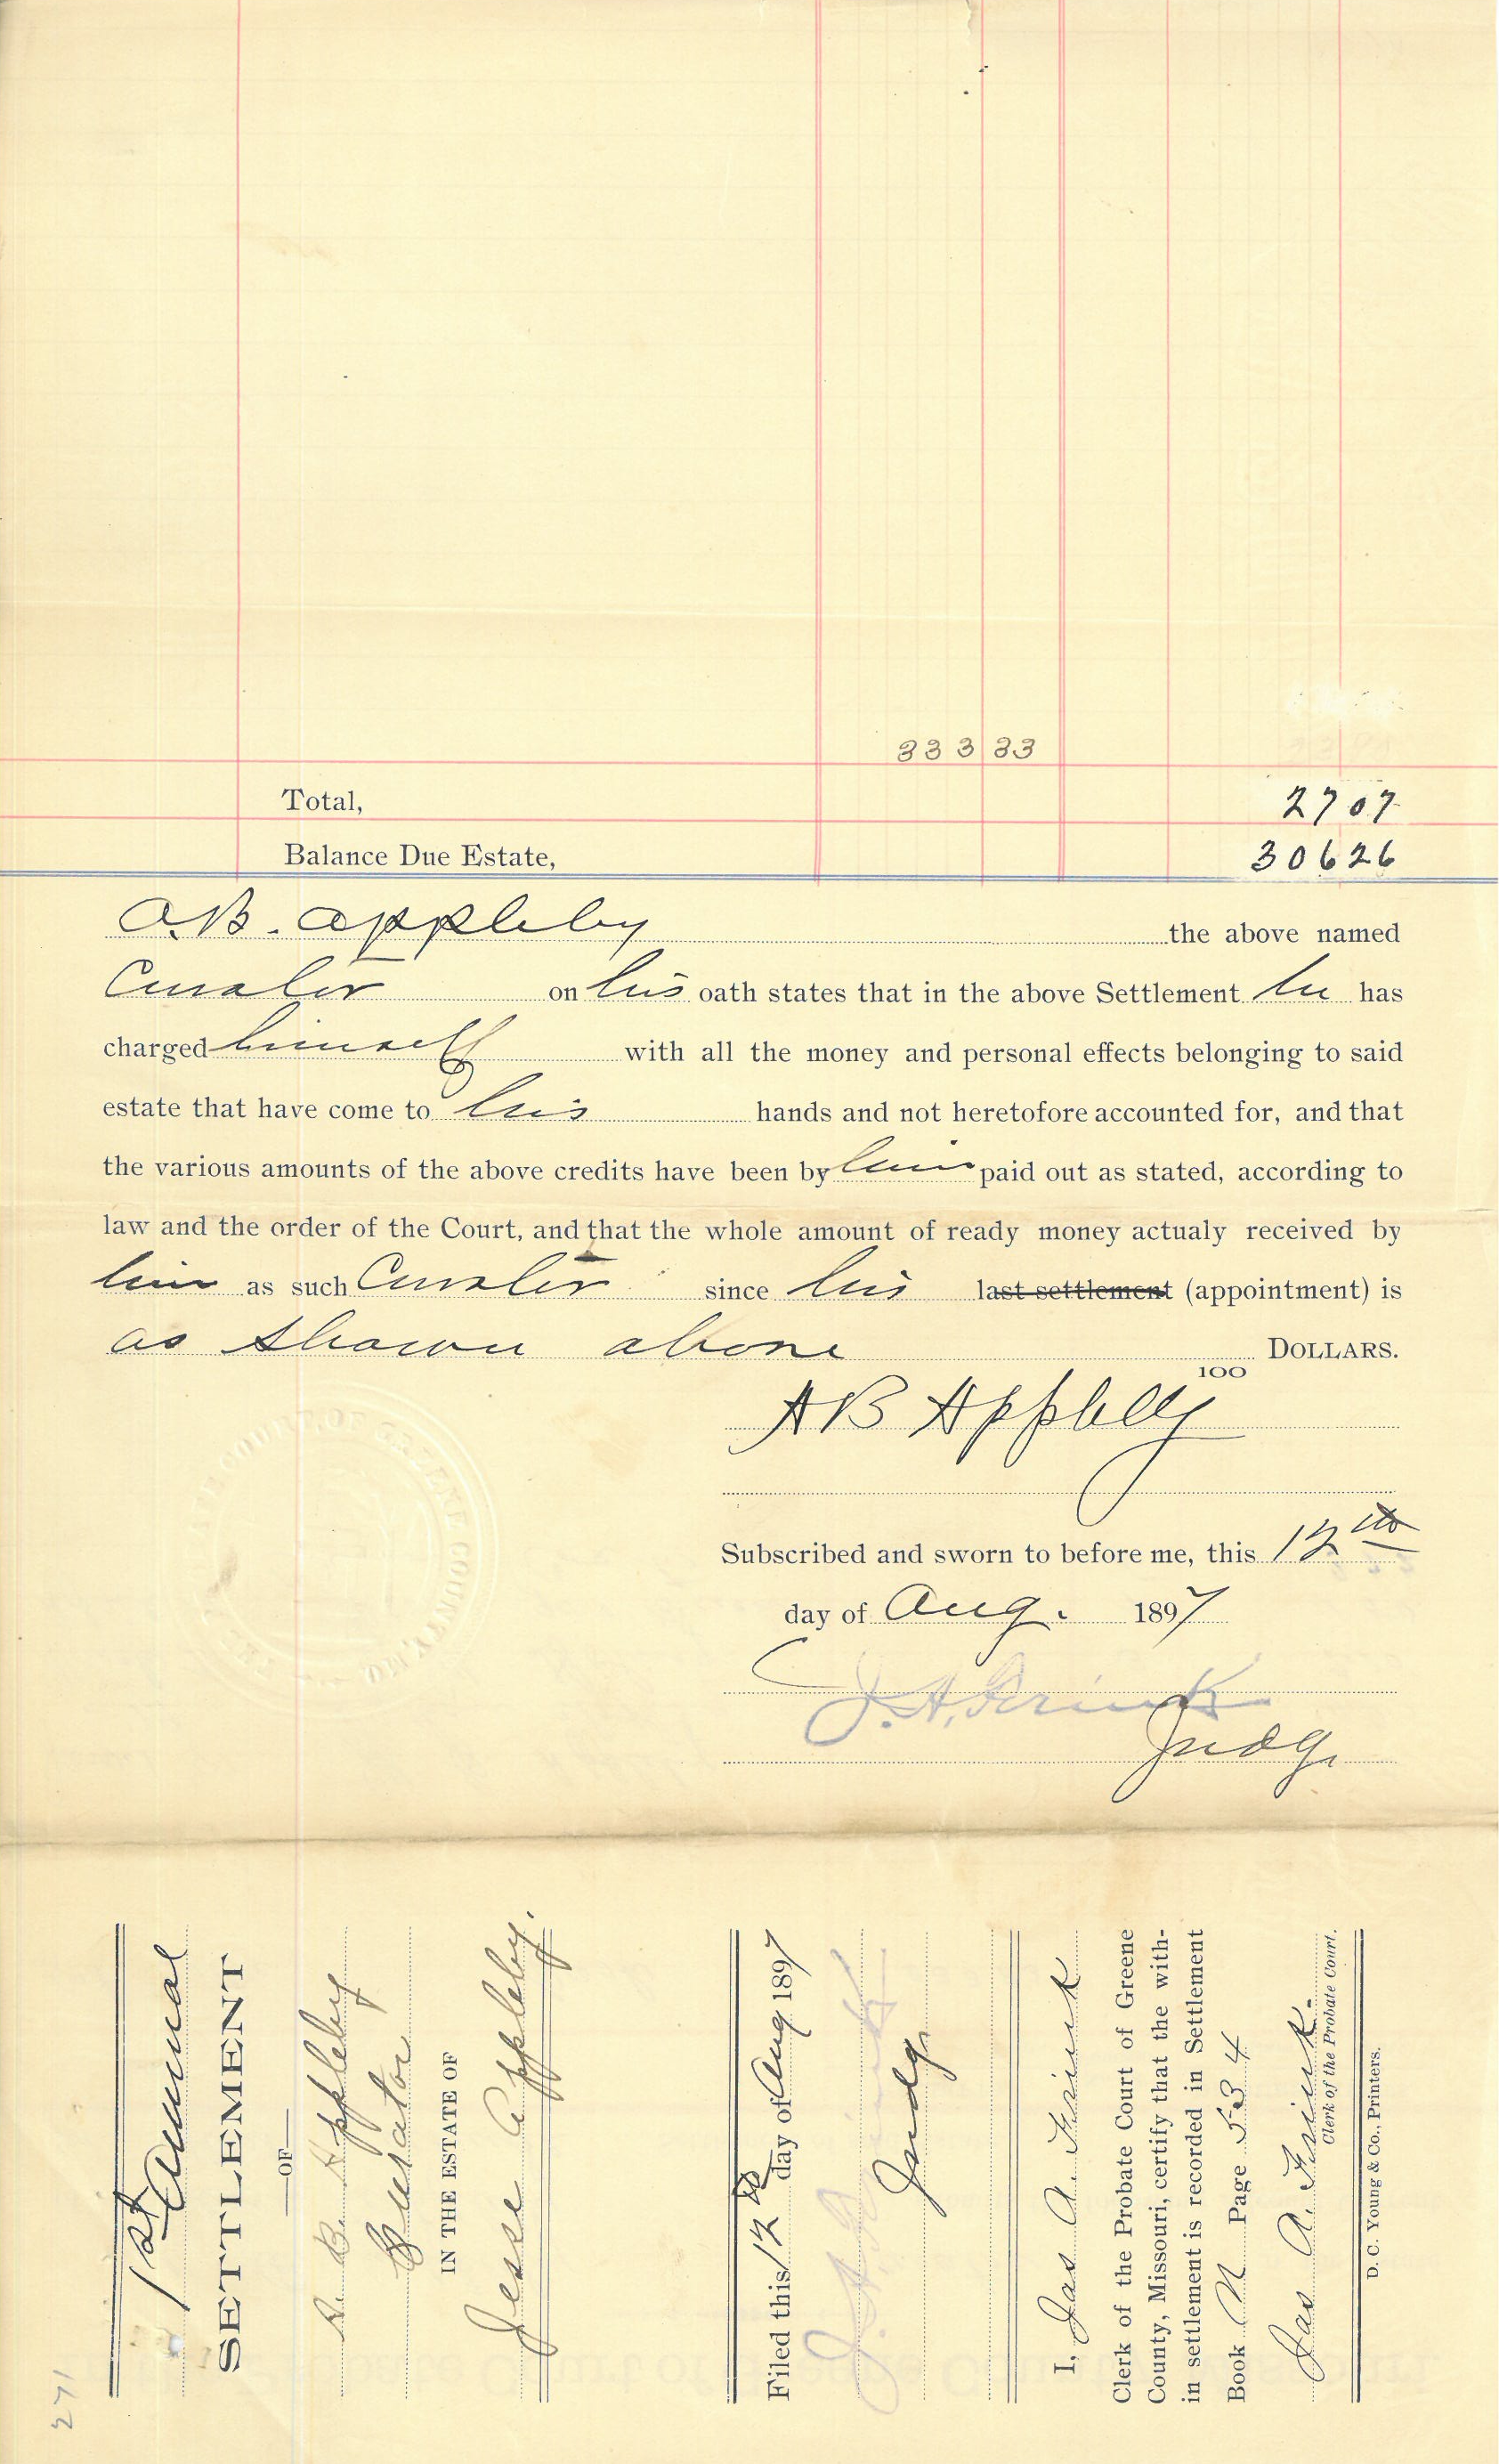 333 33
Total, 27 07
Balance Due Estate, 306 26
A.B. Appleby the above named
Curator on his oath states that in the above Settlement he has
charged himself with all the money and personal effects belonging to said
estate that have come to his hands and not heretofore accounted for, and that
the various amounts of the above credits have been by him paid out as stated, according to
law and the order of the Court, and that the whole amount of ready money actualy received by
him as such Curator since his last settlement (appointment) is
as shown above DOLLARS.
100
A B Appleby
Subscribed and sworn to before me, this 12th
day of Aug. 1897
J. A. Frink
Judge
COURT OF GREENE COUNTY, MO.
1st Annual
SETTLEMENT
—OF—
A. B. Appleby
Curator
IN THE ESTATE OF
Jesse Appleby.
Filed this 12th day of Aug 1897
J. A. Frink
Judge
I, Jas A. Frink
Clerk of the Probate Court of Greene
County, Missouri, certify that the with-
in settlement is recorded in Settlement
Book N Page 534
Jas A. Frink.
Clerk of the Probate Court.
D. C. Young & Co., Printers.
271